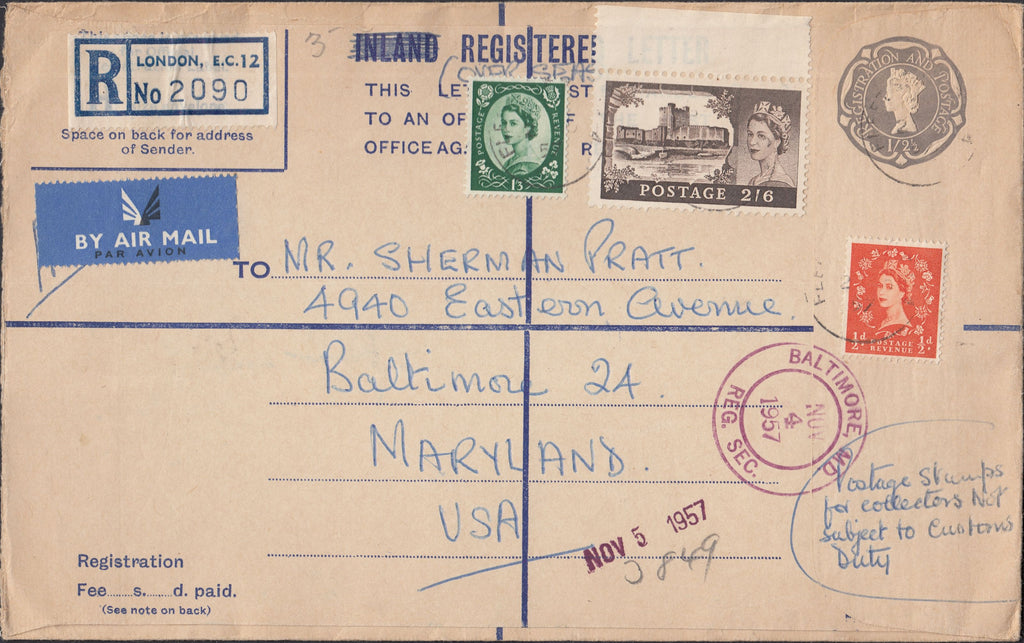 3
INLAND REGISTERED LETTER
(OVER SEAS
THIS LE
TO AN OF
OFFICE AG
R
LONDON, E.C.12
No 2090
Space on back for address
of Sender.
BY AIR MAIL
PAR AVION
POSTAGE
REVENUE
1/3
POSTAGE 2/6
REGISTRATION AND POSTAGE
1/2½
½d ½d
POSTAGE
REVENUE
TO MR. SHERMAN PRATT.
4940 Eastern Avenue.
Baltimore 24.
MARYLAND.
USA
BALTIMORE, MD
NOV
4
1957
REG. SEC.
NOV 5 1957
3849
Postage Stamps
for collectors Not
subject to Customs
Duty
Registration
Fee........s.......d. paid.
(See note on back)